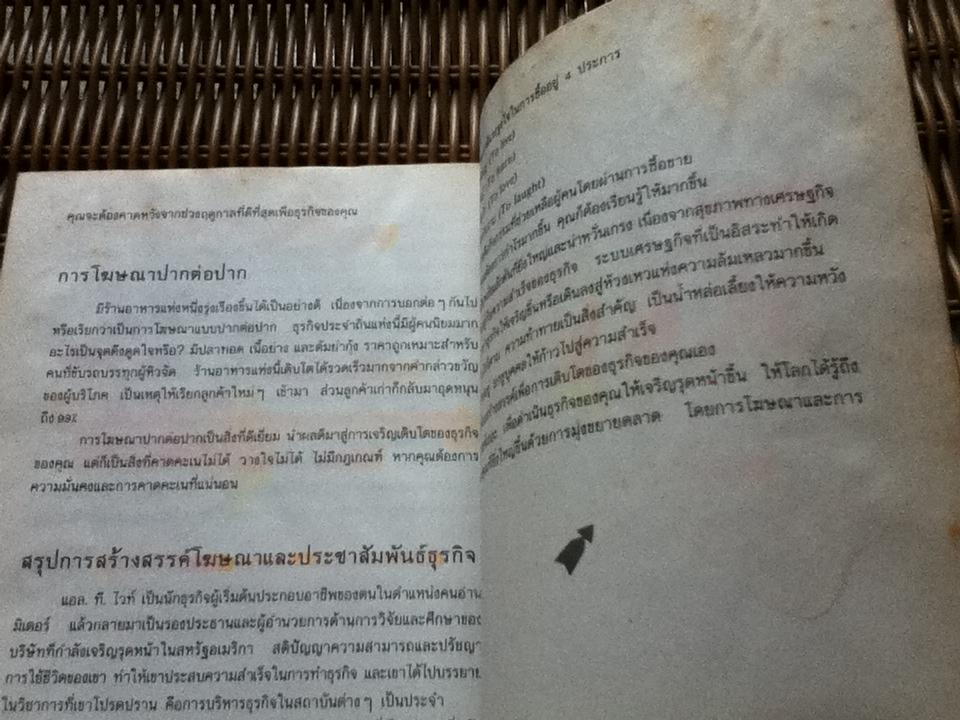 คุณจะต้องคาดหวังจากช่วงฤดูกาลที่ดีที่สุดเพื่อธุรกิจของคุณ
การโฆษณาปากต่อปาก
มีร้านอาหารแห่งหนึ่งรุ่งเรืองขึ้นได้เป็นอย่างดี เนื่องจากการบอกต่อๆ กันไป
หรือเรียกว่าเป็นการโฆษณาแบบปากต่อปาก ธุรกิจประจำถิ่นแห่งนี้มีผู้คนนิยมมาก
อะไรเป็นจุดดึงดูดใจหรือ? มีปลาทอด เนื้อย่าง และต้มยำกุ้ง ราคาถูกเหมาะสำหรับ
คนที่ขับรถบรรทุกผู้หิวจัด ร้านอาหารแห่งนี้เติบโตได้รวดเร็วมากจากคำกล่าวขวัญ
ของผู้บริโภค เป็นเหตุให้เรียกลูกค้าใหม่ๆ เข้ามา ส่วนลูกค้าเก่าก็กลับมาอุดหนุน
ถึง 99%
การโฆษณาปากต่อปากเป็นสิ่งที่ดีเยี่ยม นำผลดีมาสู่การเจริญเติบโตของธุรกิจ
ของคุณ แต่ก็เป็นสิ่งที่คาดคะเนไม่ได้ วางใจไม่ได้ ไม่มีกฎเกณฑ์ หากคุณต้องการ
ความมั่นคงและการคาดคะเนที่แน่นอน
สรุปการสร้างสรรค์โฆษณาและประชาสัมพันธ์ธุรกิจ
แอล. ที. ไวท์ เป็นนักธุรกิจผู้เริ่มต้นประกอบอาชีพของตนในตำแหน่งคนอ่าน
มิเตอร์ แล้วกลายมาเป็นรองประธานและผู้อำนวยการด้านการวิจัยและศึกษาของ
บริษัทที่กำลังเจริญรุดหน้าในสหรัฐอเมริกา สติปัญญาความสามารถและปรัชญา
การใช้ชีวิตของเขา ทำให้เขาประสบความสำเร็จในการทำธุรกิจ และเขาได้ไปบรรยาย
ในวิชาการที่เขาโปรดปราน คือการบริหารธุรกิจในสถาบันต่างๆ เป็นประจำ
ในการซื้ออยู่ 4 ประการ
(To live)
(To learn)
(To love)
(To laught)
ที่ช่วยเหลือผู้คนโดยผ่านการซื้อขาย
กำไรมากขึ้น คุณก็ต้องเรียนรู้ให้มากขึ้น
ที่ยิ่งใหญ่และน่าหวั่นเกรง เนื่องจากสุขภาพทางเศรษฐกิจ
ความสำเร็จของธุรกิจ ระบบเศรษฐกิจที่เป็นอิสระทำให้เกิด
ให้เจริญขึ้นหรือเดินลงสู่ห้วงเหวแห่งความล้มเหลวมากขึ้น
ความท้าทายเป็นสิ่งสำคัญ เป็นน้ำหล่อเลี้ยงให้ความหวัง
บุคคลให้ก้าวไปสู่ความสำเร็จ
เพื่อการเติบโตของธุรกิจของคุณเอง
เพื่อดำเนินธุรกิจของคุณให้เจริญรุดหน้าขึ้น ให้โลกได้รู้ถึง
ใหญ่ขึ้นด้วยการมุ่งขยายตลาด โดยการโฆษณาและการ